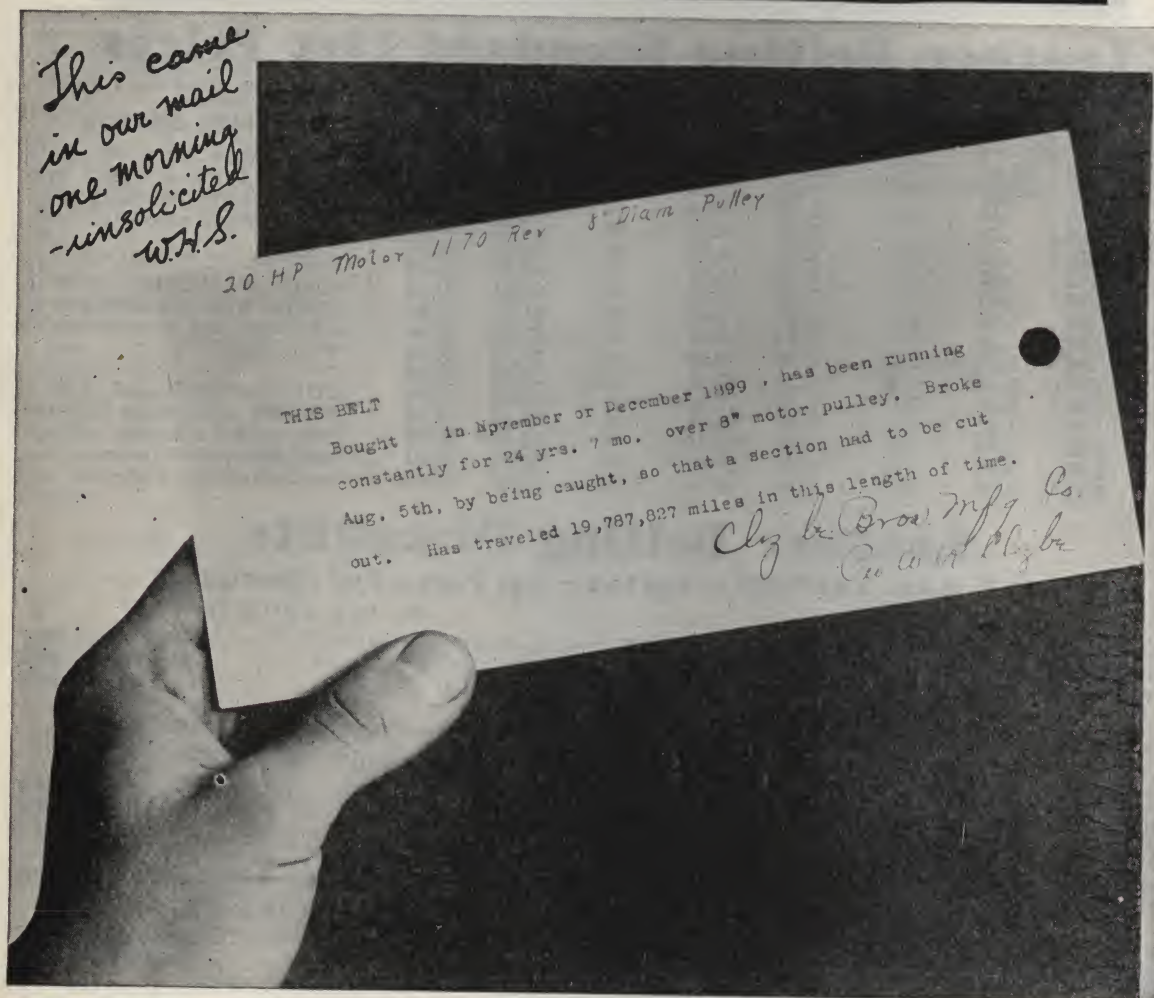 This came
in our mail
one morning
-unsolicited
W.H.S.
20 HP Motor 1170 Rev 8" Diam Pulley
THIS BELT
Bought in November or December 1899 , has been running
constantly for 24 yrs. 7 mo. over 8" motor pulley. Broke
Aug. 5th, by being caught, so that a section had to be cut
out. Has traveled 19,787,827 miles in this length of time.
Bros. Mfg Co.